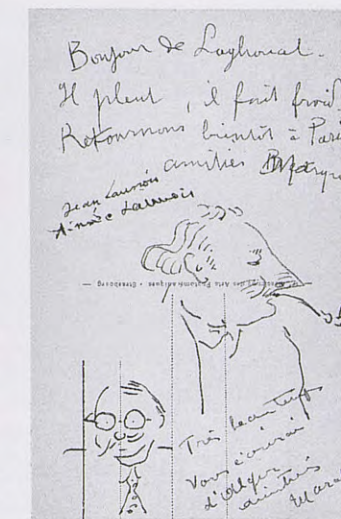 Bonjour de Laghouat.
Il pleut, il fait froid.
Retournons bientôt à Paris
amitiés
Jean Launois
Aimée Launois
Très beau temps
Vous écrirai
d'Alger
amitiés